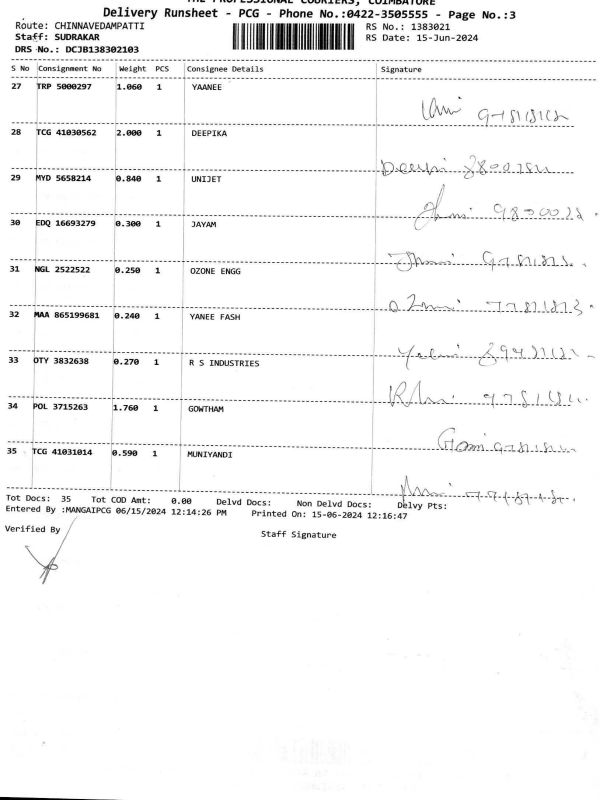 THE PROFESSIONAL COURIERS, COIMBATORE
Delivery Runsheet - PCG - Phone No.:0422-3505555 - Page No.:3
Route: CHINNAVEDAMPATTI RS No.: 1383021
Staff: SUDRAKAR RS Date: 15-Jun-2024
DRS No.: DCJB138302103
S No Consignment No Weight PCS Consignee Details Signature
27 TRP 5000297 1.060 1 YAANEE
28 TCG 41030562 2.000 1 DEEPIKA
29 MYD 5658214 0.840 1 UNIJET
30 EDQ 16693279 0.300 1 JAYAM
31 NGL 2522522 0.250 1 OZONE ENGG
32 MAA 865199681 0.240 1 YANEE FASH
33 OTY 3832638 0.270 1 R S INDUSTRIES
34 POL 3715263 1.760 1 GOWTHAM
35 TCG 41031014 0.590 1 MUNIYANDI
Tot Docs: 35 Tot COD Amt: 0.00 Delvd Docs: Non Delvd Docs: Delvy Pts:
Entered By :MANGAIPCG 06/15/2024 12:14:26 PM Printed On: 15-06-2024 12:16:47
Verified By
Staff Signature